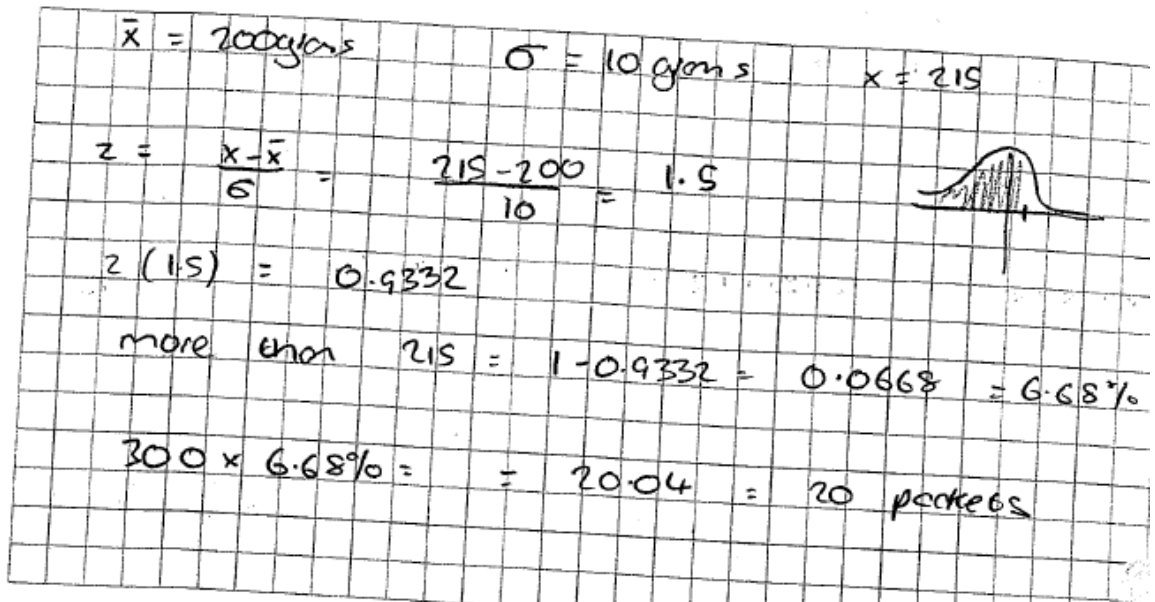 x̄ = 200grams σ = 10 grams x = 215
z = (x - x̄)/σ = (215 - 200)/10 = 1.5
z (1.5) = 0.9332
more than 215 = 1 - 0.9332 = 0.0668 = 6.68%
300 × 6.68% = = 20.04 = 20 packets